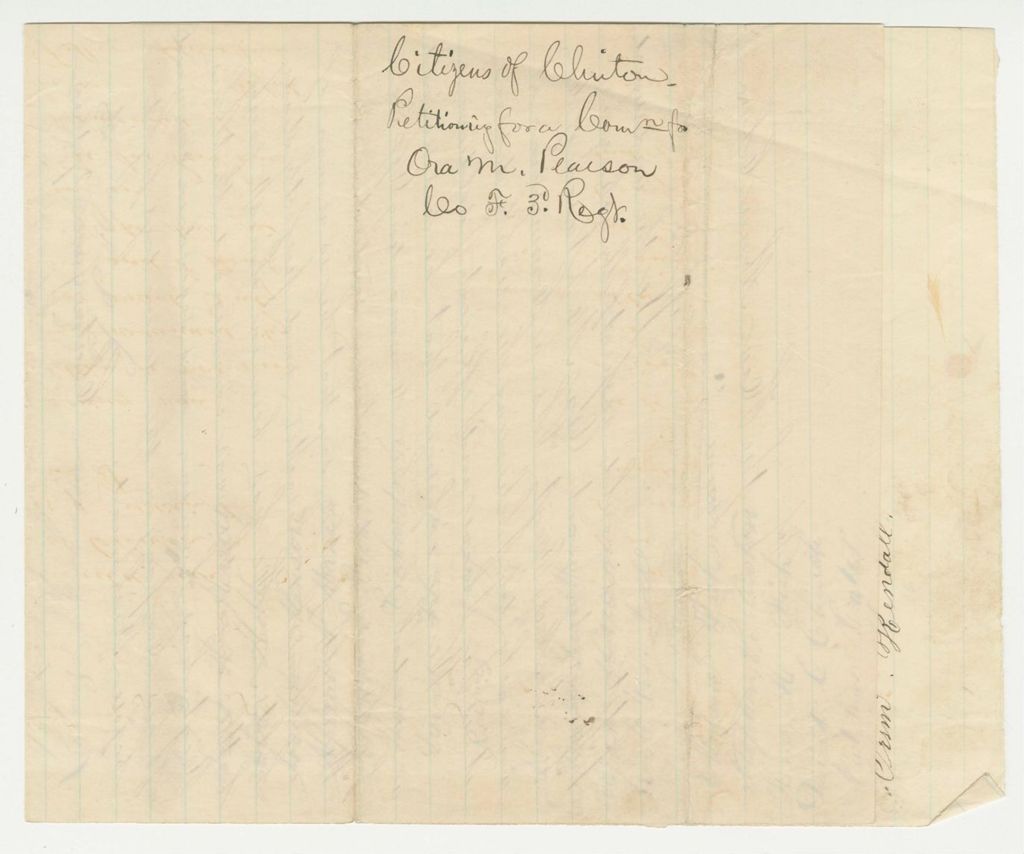 Citizens of Clinton
Petitioning for a Comn fo
Ora M. Pearson
Co F. 3d. Regt.
Kendall.